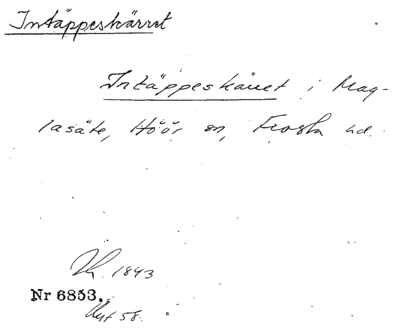 Intäppeskärret
Intäppeskärret i Mag-
lasäte, Höör sn, Frosta hd.
1843
Nr 6853.
58.